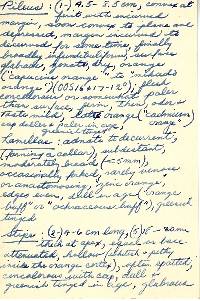 Pileus: (1-) 4.5 - 8.5 cm, convex at
first with incurved
margin, soon convex to plane and
depressed, margin incurved to
decurved for some time, finally
broadly infundibuliform; surface
glabrous, dry, orange
("capucine orange" to "mikado
orange"); flesh
concolorous or somewhat paler
than surface, firm, thin, odor &
taste mild, latex orange ("cadmium
orange")
greenish tinged
Lamellae: adnate to decurrent,
(forming a collar), subdistant,
moderately broad (-5mm),
occasionally forked, rarely venose
or anastomosing, same orange,
edges even, dull in age ("orange
buff" or "ochraceous buff"), greenish
tinged
Stipe: (2-) 4-6 cm long, (5) 8 - 20mm
thick at apex, equal or base
attenuated, hollow (sketch - pith
inside the orange color), often spotted,
concolorous with cap, dull &
greenish tinged in age, glabrous